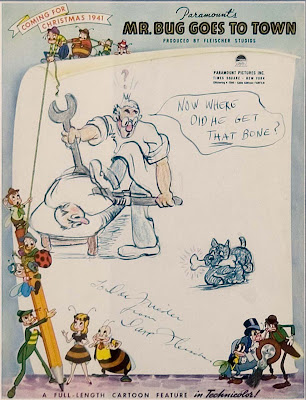 COMING FOR
CHRISTMAS 1941
Paramount's
MR. BUG GOES TO TOWN
PRODUCED BY FLEISCHER STUDIOS
PARAMOUNT PICTURES INC.
TIMES SQUARE · NEW YORK
! ?
NOW WHERE
DID HE GET
THAT BONE?
from
A FULL-LENGTH CARTOON FEATURE in Technicolor!